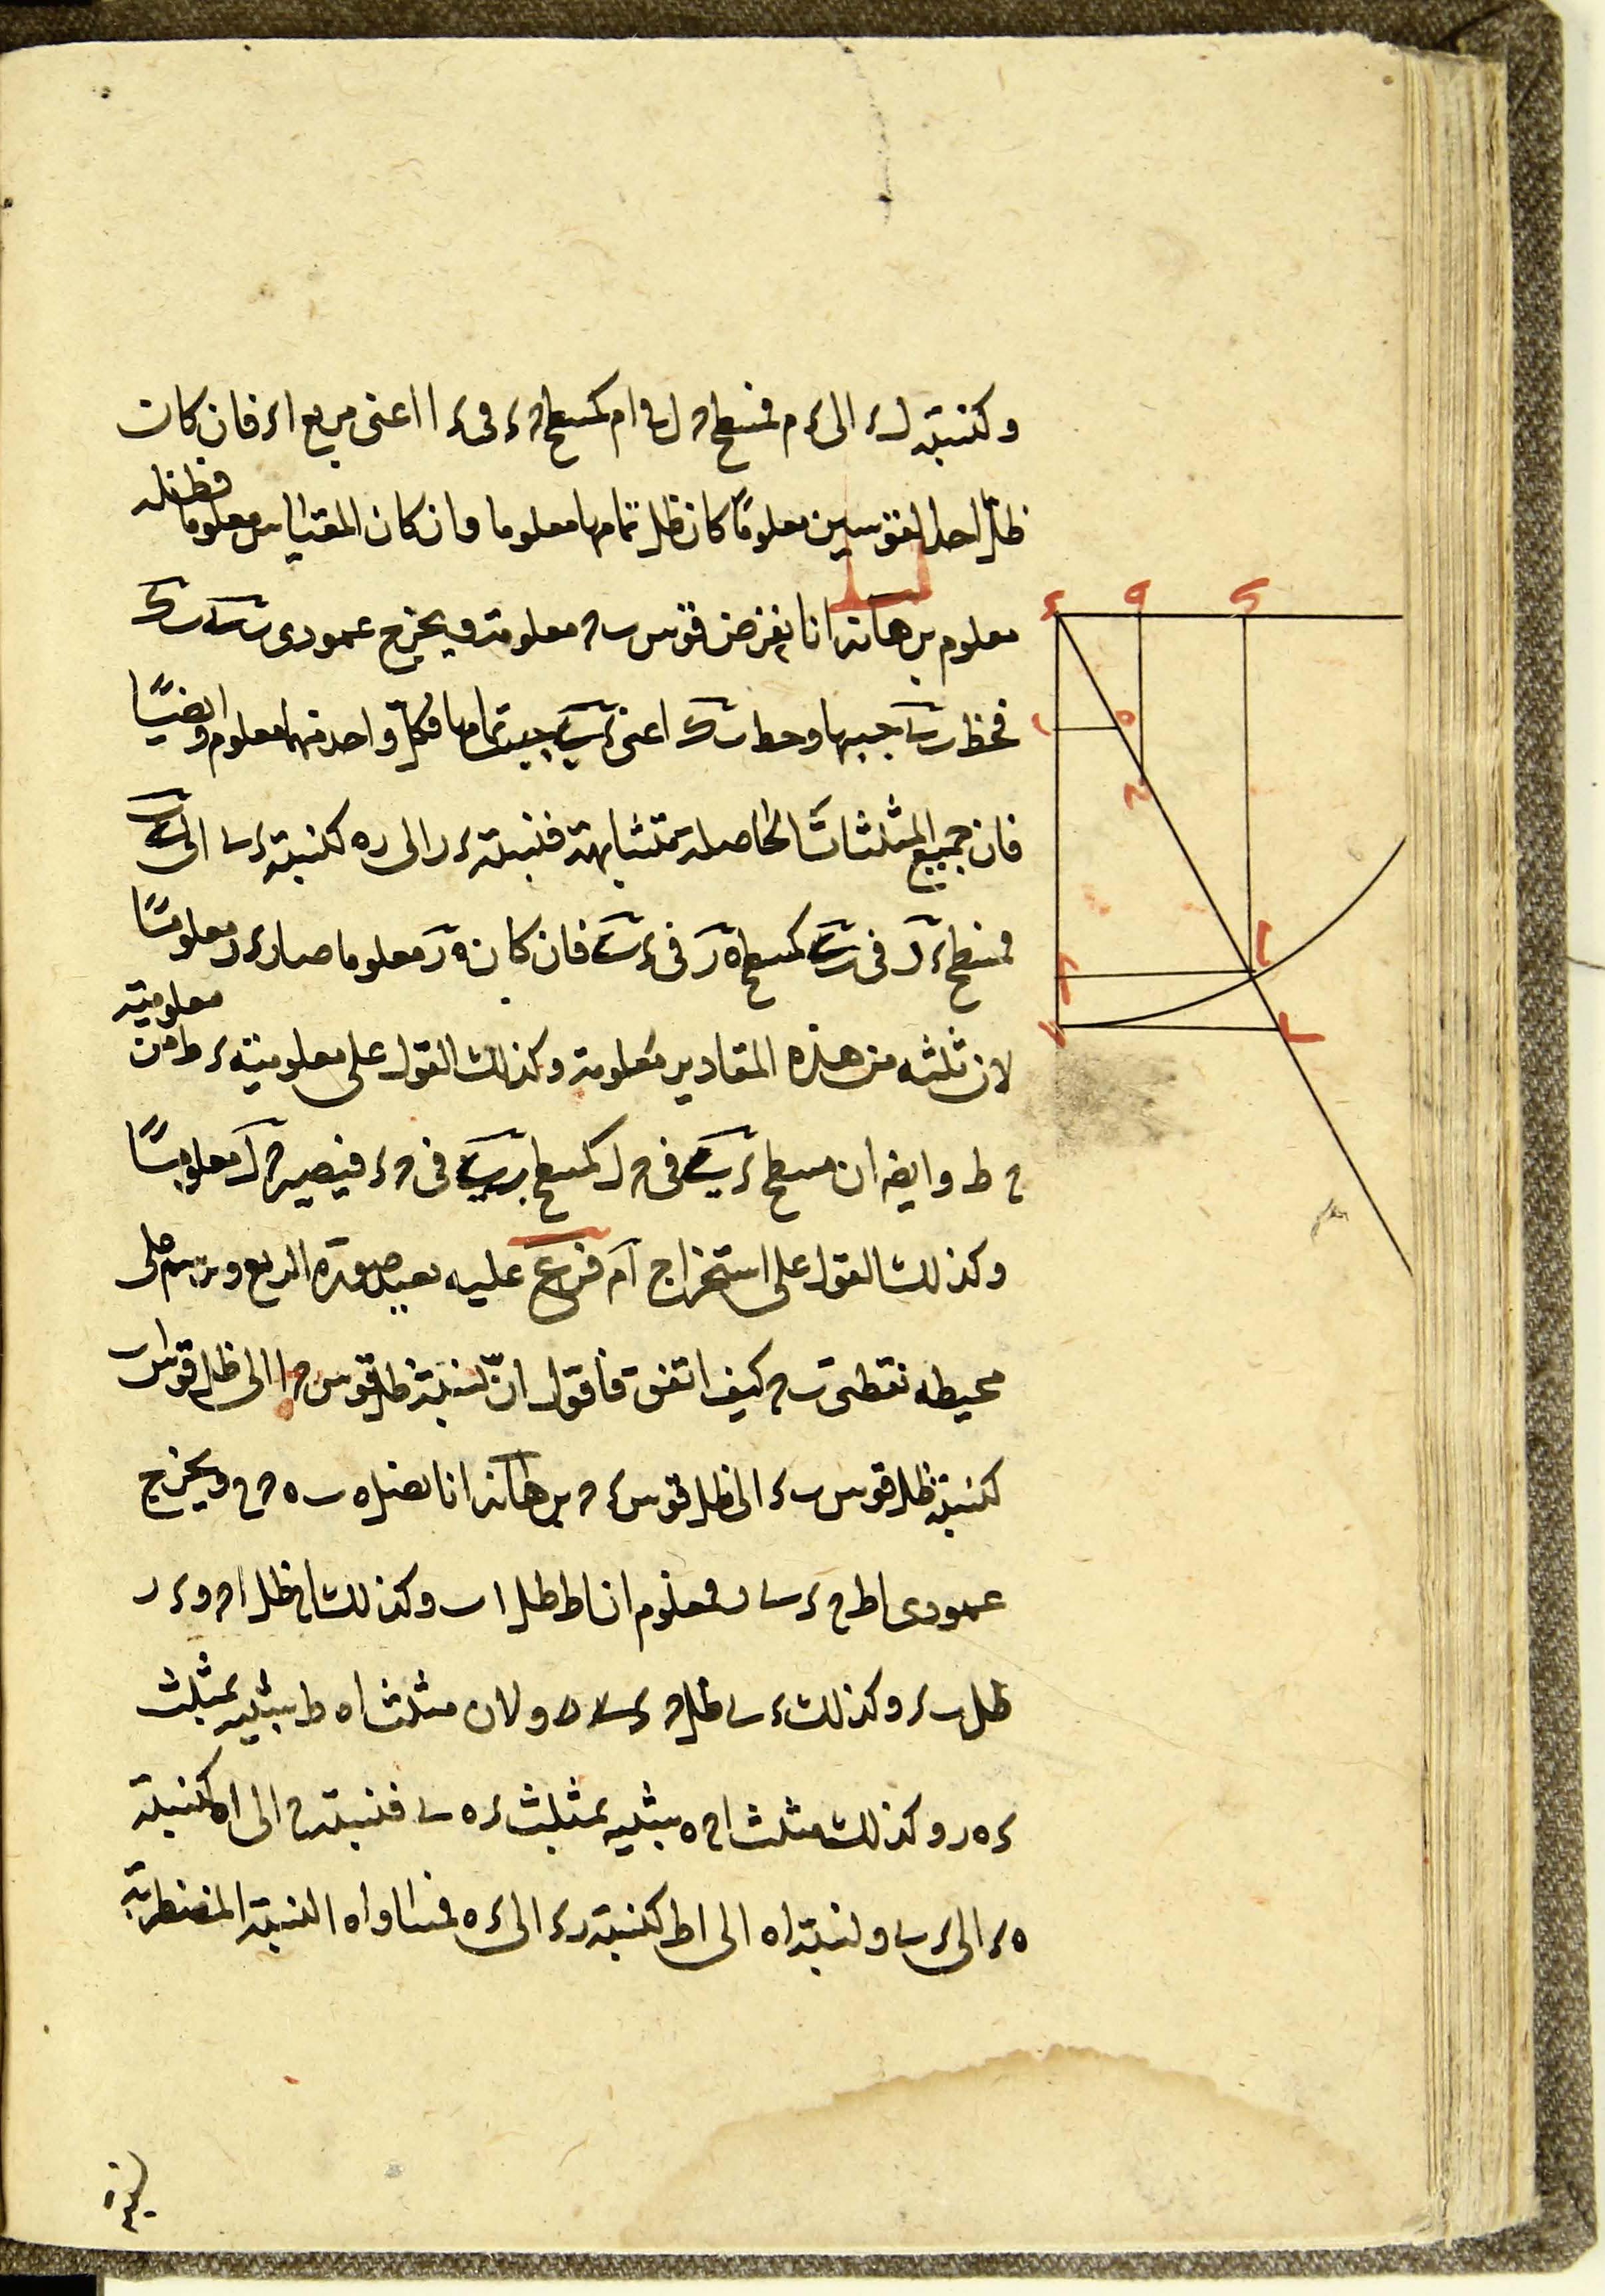 وكنسبة ل ء الى ء م فمسطح ح ل في ام كمسطح ح ء في ء ا اعنى مربع ا ء فان كان
ظل احد القوسين معلومًا كان ظل تمامها معلوما وان كان المقياس معلوما فظله
معلوم برهانه انا نفرض قوس ب ح معلومة ويخرج عمودى
فخط جيبها وخط ب ك اعنى جيب تمامها فكل واحد منهما معلوم وايضًا
فان جميع المثلثات الحاصلة متشابهة فنسبة ء ر الى ر ه كنسبة ء ى الى
فمسطح ء ر في كمسطح ه ر في ء ى فان كان ه ر معلوما صار ء ر معلومًا
لان ثلثه من هذه المقادير معلومة وكذلك القول على معلومية ء ط من معلومية
ح ط وايضا ان مسطح ء ى في ح ل كمسطح ب ى في ح ء فيصير ح ل معلومًا
وكذلك القول على استخراج ا م فرع عليه نعيد صورة الربع ونرسم على
محيطه نقطتى ب ح كيف اتفق فاقول انّ نسبة ظل قوس ح ا الى ظل قوس ا ب
كنسبة ظل قوس ب ء الى ظل قوس ء ح برهانه انا نصل ه ب ه ح ويخرج
عمودى ا ط ح ء ى ر فمعلوم ان ا ط ظل ا ب وكذلك ا ح ظل ا ح و ء ر
ظل ب ء وكذلك ء ى ظل ح ء ولان مثلث ا ه ط شبيه بمثلث
ء ه ر وكذلك مثلث ا ح ه شبيه بمثلث ء ه ى فنسبة ح ا الى ا ه كنسبة
ه ء الى ء ى ونسبة ا ه الى ا ط كنسبة ر ء الى ء ه فمساواه النسبة المضطربة
ء
ه
ك
ر
ه
ح
ب
ى
ح
ل
نسبة